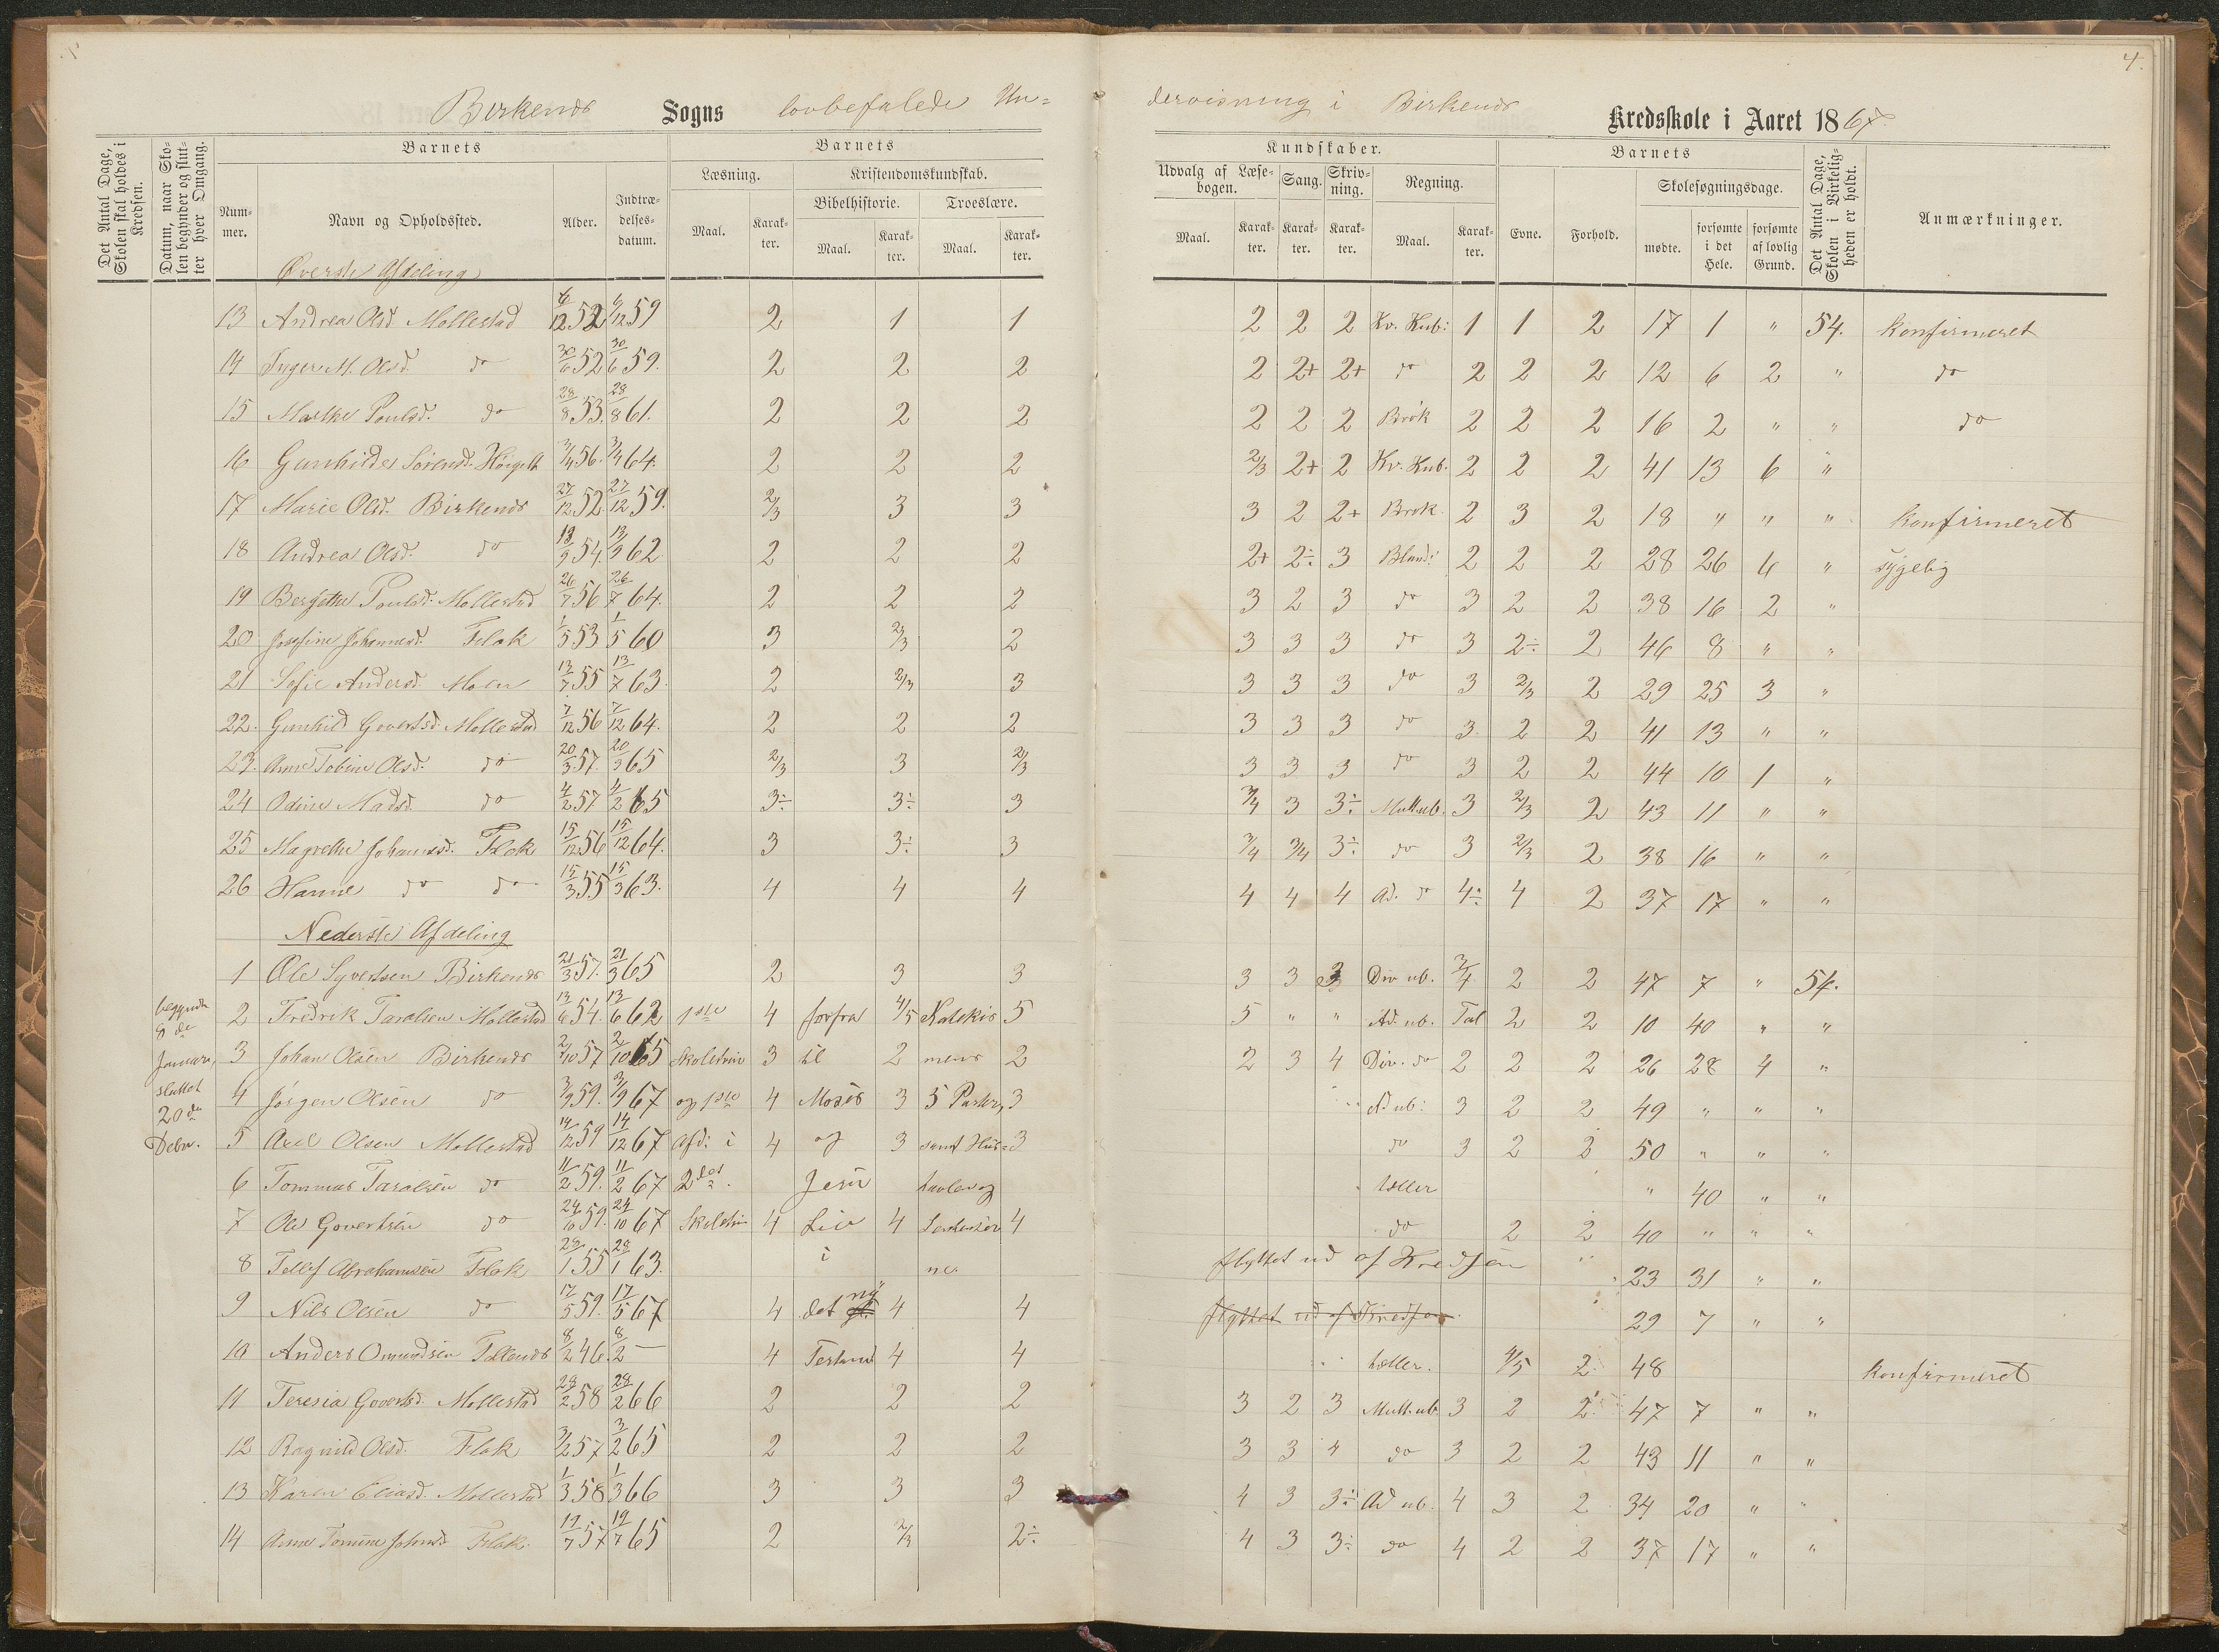 4.
Birkenes Sogns lovbefalede Un= dervisning i Birkenes Kredsskole i Aaret 1867
Det Antal Dage, Skolen skal holdes i Kredsen.
Datum, naar Skolen begynder og slutter hver Omgang.
Barnets
Nummer.
Navn og Opholdssted.
Alder.
Indtrædelsesdatum.
Barnets
Læsning.
Maal.
Karakter.
Kristendomskundskab.
Bibelhistorie.
Maal.
Karakter.
Troeslære.
Maal.
Karakter.
Kundskaber.
Udvalg af Læsebogen.
Maal.
Karakter.
Sang.
Karakter.
Skrivning.
Karakter.
Regning.
Maal.
Karakter.
Barnets
Evne.
Forhold.
Skolesøgningsdage.
mødte.
forsømte i det Hele.
forsømte af lovlig Grund.
Det Antal Dage, Skolen i Virkeligheden er holdt.
Anmærkninger.
Øverste Afdeling
13 Andrea Olsd. Mollestad 6/12 52 6/12 59 2 1 1 2 2 2 Kv. Kub: 1 1 2 17 1 " 54. konfirmeret
14 Inger M. Olsd. do 30/6 52 30/6 59. 2 2 2 2 2+ 2+ do 2 2 2 12 6 2 " do
15 Marthe Poulsd. do 28/8 53. 28/8 61. 2 2 2 2 2 2 Brøk 2 2 2 16 2 " " do
16 Gunhilde Sørensd. 3/4 56. 3/4 64. 2 2 2 2/3 2+ 2 Kv. Kub. 2 2 2 41 13 6 "
17 Marie Olsd. Birkenes 27/12 52. 27/12 59. 2/3 3 3 3 2 2+ Brøk. 2 3 2 18 " " " konfirmeret
18 Andrea Olsd. do 13/9 54. 13/9 62 2 2 2 2+ 2÷ 3 Bland: 2 2 2 28 26 4 " sygelig
19 Bergithe Poulsd. Mollestad 26/7 56 26/7 64. 2 2 2 3 2 3 do 3 2 2 38 16 2 "
20 Josefine Johannesd. Flak 1/5 53 1/5 60 3 2/3 2 3 3 3 do 3 2÷ 2 46 8 " "
21 Sofie Andersd. Moen 13/7 55 13/7 63. 2 2/3 3 3 3 3 do 3 2/3 2 29 25 3 "
22. Gunhild Govertsd. Mollestad 7/12 56 7/12 64. 2 2 2 3 3 3 do 3. 2 2 41 13 " "
23. Anne Tobine Olsd. do 20/3 57. 20/3 65 2/3 3 2/3 3 3 3 do 3 2 2 44 10 1 "
24 Odine Madsd. do 4/2 57 4/2 65 3÷ 3÷ 3 3/4 3 3÷ Mult. ub. 3 2/3 2 43 11 " "
25 Magrethe Johannesd. Flak 15/12 56 15/12 64. 3 3÷ 3 3/4 3/4 3÷ do 3 2/3 2 38 16 " "
26 Hanne do do 15/3 55 15/3 63. 4 4 4 4 4 4 Ad. do 4÷ 4 2 37 17 " "
Nederste Afdeling
begyndte 8de Januar, sluttet 20de Debr.
1 Ole Syvertsen Birkenes 21/3 57. 21/3 65 2 3 3 3 3 3 Div ub. 3/4 2 2 47 7 " 54.
2 Fredrik Taralsen Mollestad 13/6 54. 13/6 62 1ste 4 forfra 4/5 Katekis 5 5 " " Ad. ub. Tal 2 2 10 40 " "
3 Johan Olsen Birkenes 2/10 57 2/10 65 Skoletrin 3 til 2 mens 2 2 3 4 Div. do 2 2 2 26 28 4 "
4 Jørgen Olsen do 3/9 59. 3/9 67 og 1ste 4 Moses 3 5 Parter, 3 Ad ub: 3 2 2 49 " " "
5 Axel Olsen Mollestad 14/12 59 14/12 67 Afd: i 4 og 3 samt Hus= 3 do 3 2 2 50 " " "
6 Tommas Taralsen do 11/2 59. 11/2 67 2det. Jesu tavlen og tæller " 40 " "
7 Ole Govertsen do 24/10 59. 24/10 67 Skoletrin 4 Liv 4 4 do 2 2 40 " " "
8 Tellef Abrahamsen Flak 28/1 55 28/1 63. i ne. flyttet ud af Kredsen 23 31 " "
9 Nils Olsen do 17/5 59. 17/5 67 4 det ny 4 4 flyttet ud af Kredsen. 29 7 " "
10 Anders Omundsen 8/2 46. 8/2 — 4 Testam 4 4 tæller. 4/5 2 48 konfirmeret
11 Teresia Govertsd. Mollestad 28/2 58 28/2 66 2 2 2 3 2 3 Mult. ub. 3 2 2 47 7 " "
12 Ragnild Olsd. Flak 3/2 57 3/2 65 2 2 2 3 3 4 do 3 2 2 43 11 " "
13 Karen Eliasd. Mollestad 1/3 58 1/3 66 3 3 3 4 3 3÷ Ad ub. 4 3 2 34 20 " "
14 Anne Tomine Johnsd. Flak 19/7 57 19/7 65 2 2/3 2÷ 4 3 3÷ do 4 2 2 37 17 " "